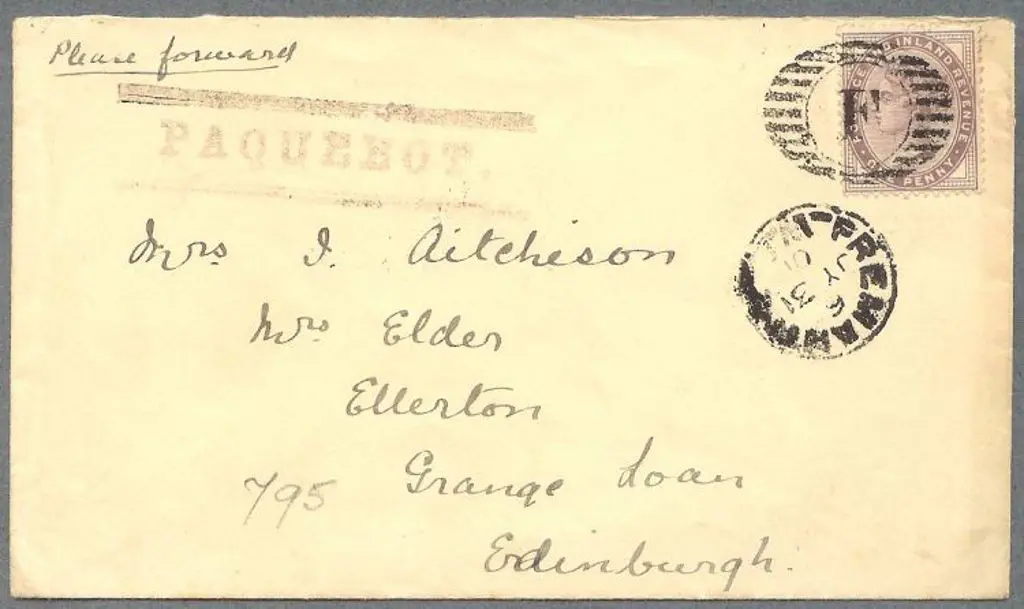 Please forward
PAQUEBOT.
INLAND REVENUE
PENNY
FREMAN
JY 31
Mrs I. Aitcheson
Mrs Elder
Ellerton
795 Grange Loan
Edinburgh.